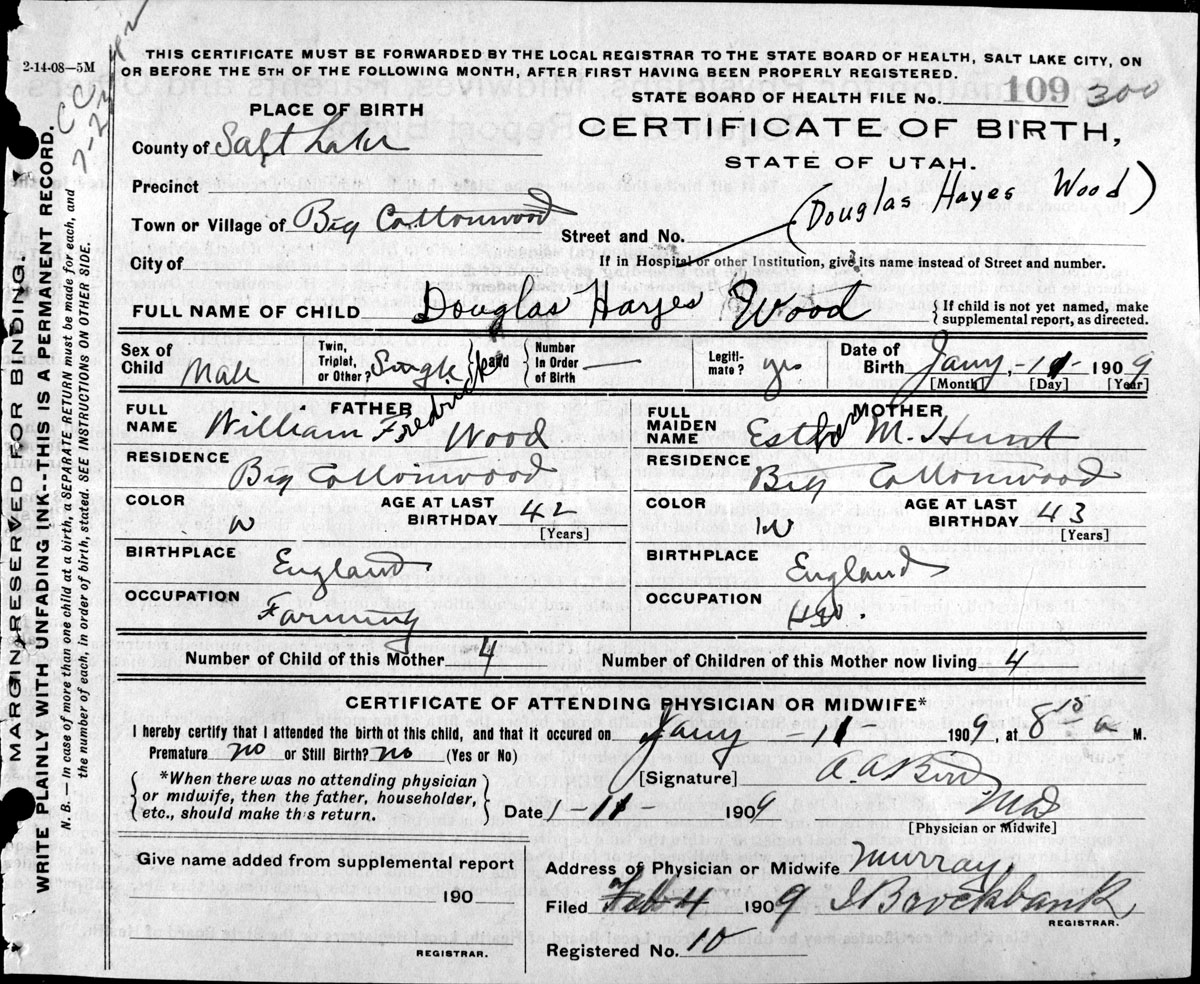 2-14-08—5M
THIS CERTIFICATE MUST BE FORWARDED BY THE LOCAL REGISTRAR TO THE STATE BOARD OF HEALTH, SALT LAKE CITY, ON
OR BEFORE THE 5TH OF THE FOLLOWING MONTH, AFTER FIRST HAVING BEEN PROPERLY REGISTERED.
STATE BOARD OF HEALTH FILE No. 109 300
PLACE OF BIRTH
CERTIFICATE OF BIRTH,
STATE OF UTAH.
County of Salt Lake
Precinct
(Douglas Hayes Wood)
Town or Village of Big Cottonwood
Street and No.
City of
If in Hospital or other Institution, give its name instead of Street and number.
FULL NAME OF CHILD Douglas Hayes Wood
{ If child is not yet named, make
supplemental report, as directed.
Sex of Child Male
Twin, Triplet, or Other? Single } and { Number In Order of Birth —
Legitimate? yes
Date of Birth Jany, - 11 - 1909
[Month] [Day] [Year]
FATHER
FULL NAME William Fredrick Wood
MOTHER
FULL MAIDEN NAME Esther M. Hunt
RESIDENCE Big Cottonwood
RESIDENCE Big Cottonwood
COLOR W AGE AT LAST BIRTHDAY 42 [Years]
COLOR W AGE AT LAST BIRTHDAY 43 [Years]
BIRTHPLACE England
BIRTHPLACE England
OCCUPATION Farming
OCCUPATION H.W.
Number of Child of this Mother 4
Number of Children of this Mother now living 4
CERTIFICATE OF ATTENDING PHYSICIAN OR MIDWIFE*
I hereby certify that I attended the birth of this child, and that it occured on Jany - 11 - 1909, at 8 10 a M.
Premature no or Still Birth? no (Yes or No)
{ *When there was no attending physician
or midwife, then the father, householder,
etc., should make this return. }
[Signature] A. A. Bird, MD
Date 1 - 11 - 1909
[Physician or Midwife]
Give name added from supplemental report
190
REGISTRAR.
Address of Physician or Midwife Murray,
Filed Feb 4 1909 J Brockbank,
REGISTRAR.
Registered No. 10
MARGIN RESERVED FOR BINDING.
WRITE PLAINLY WITH UNFADING INK--THIS IS A PERMANENT RECORD.
N. B. — In case of more than one child at a birth, a SEPARATE RETURN must be made for each, and
the number of each, in order of birth, stated. SEE INSTRUCTIONS ON OTHER SIDE.